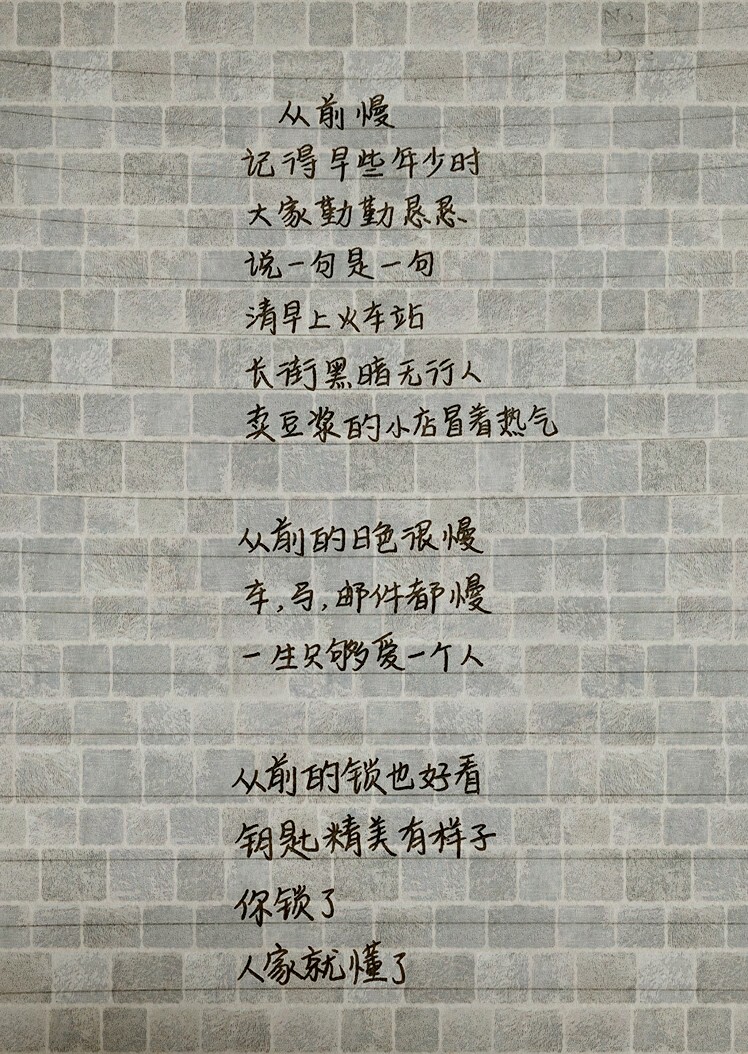 No.
Date
从前慢
记得早些年少时
大家勤勤恳恳
说一句是一句
清早上火车站
长街黑暗无行人
卖豆浆的小店冒着热气
从前的日色很慢
车,马,邮件都慢
一生只够爱一个人
从前的锁也好看
钥匙精美有样子
你锁了
人家就懂了